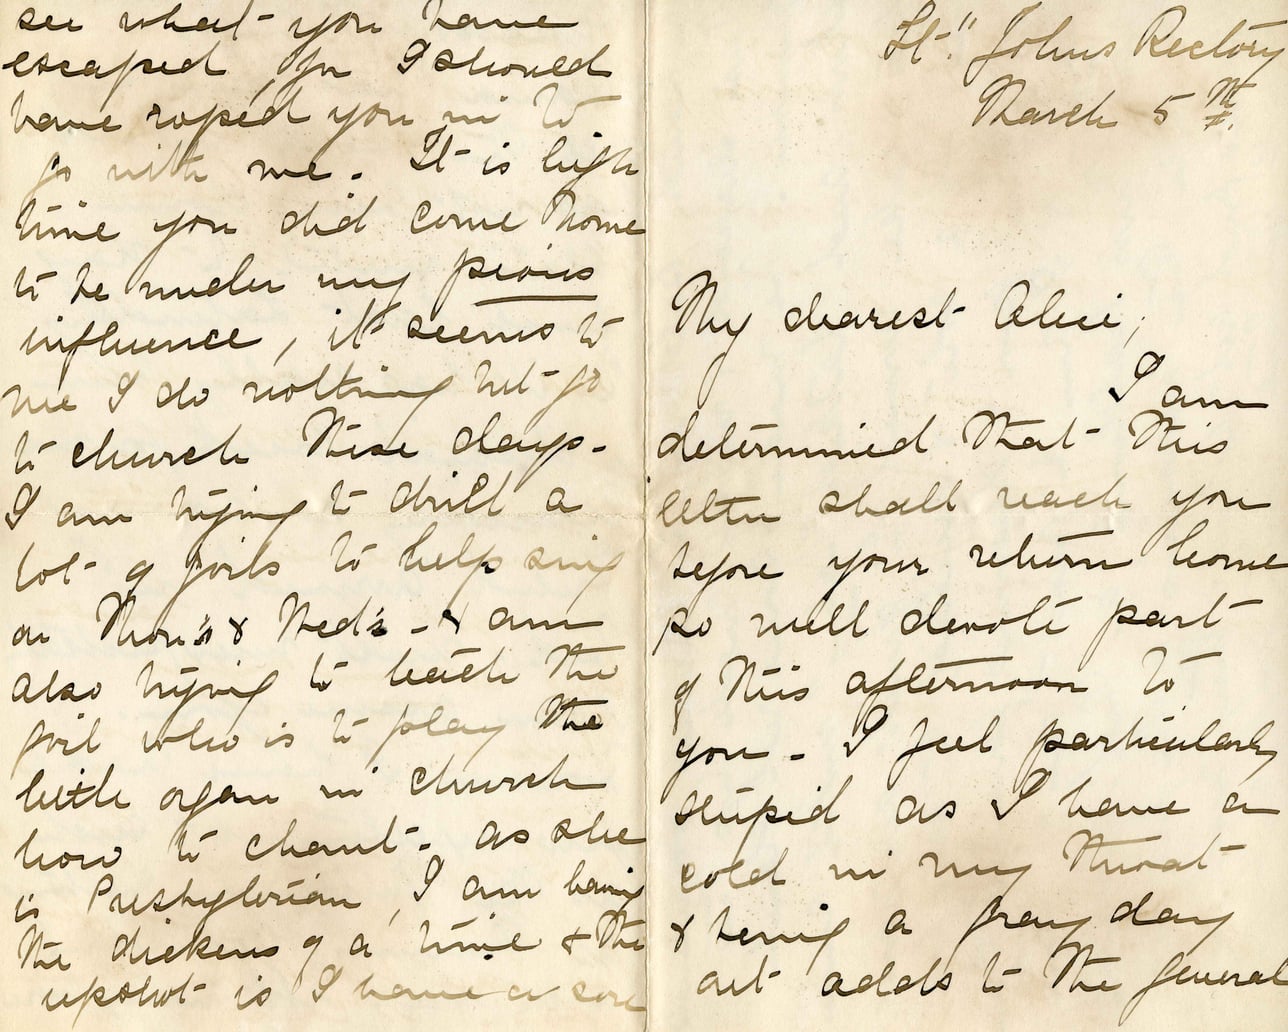 St." Johns Rectory
March 5th.
My dearest Alice,
I am
determined that this
letter shall reach you
before your return home
so will devote part
of this afternoon to
you - I feel particularly
stupid as I have a
cold in my throat
& being a gray day
out adds to the general
see what you have
escaped, for I should
have roped you in to
go with me. It is high
time you did come home
to be under my pious
influence, it seems to
me I do nothing but go
to church these days.
I am trying to drill a
lot of girls to help sing
on Thurs & Wed's - & am
also trying to teach the
girl who is to play the
little organ in church
how to chant - as she
is Presbyterian, I am having
the dickens of a time & the
upshot is I have a sore